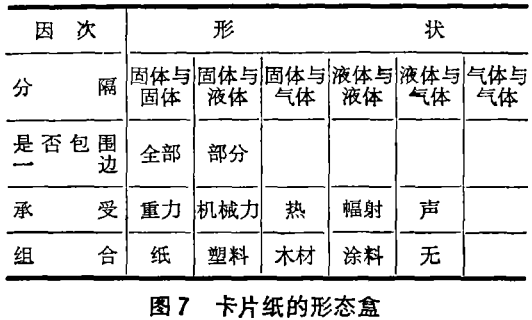 因次 形状
分隔 固体与固体 固体与液体 固体与气体 液体与液体 液体与气体 气体与气体
是否包围一边 全部 部分
承受 重力 机械力 热 幅射 声
组合 纸 塑料 木材 涂料 无
图7 卡片纸的形态盒